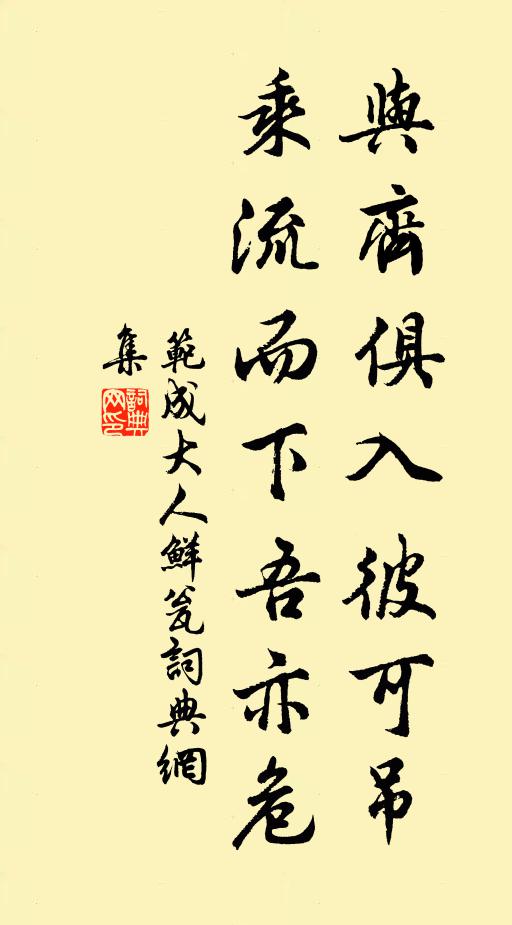 與齊俱入彼可吊
乘流而下吾亦危
範成大人鮮瓮詞典網
集
詞典
网印